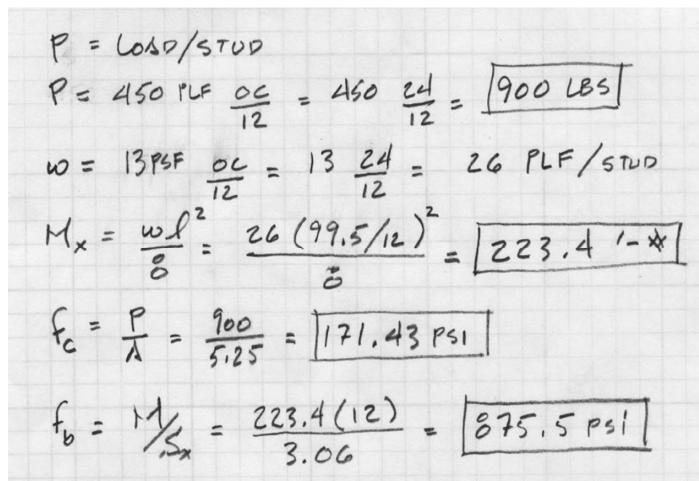 P = LOAD/STUD
P = 450 PLF OC/12 = 450 24/12 = 900 LBS
w = 13PSF OC/12 = 13 24/12 = 26 PLF/STUD
Mx = wl²/8 = 26 (99.5/12)²/8 = 223.4 '-#
fc = P/A = 900/5.25 = 171.43 PSI
fb = M/Sx = 223.4(12)/3.06 = 875.5 psi